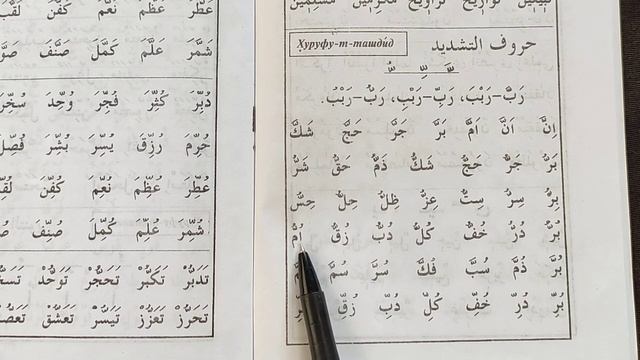 حروف التشديد Ҳуруфу-т-ташдид
ـَّـ ـِّـ ـُّـ
رَبَّ–رَبْبَ، رَبِّ–رَبْبِ، رَبُّ–رَبْبُ.
اِنَّ اَنَّ اَمَّ بَرَّ جَرَّ حَجَّ شَكَّ
بَرُّ جَرُّ حَجُّ شَكُّ ذَمُّ حَقُّ شَرُّ
بِرُّ سِرُّ سِتُّ عِزُّ ظِلُّ حِلُّ حِسُّ
بُرُّ دُرُّ خُفُّ كُلُّ دُبُّ زُقُّ
بُرَّ ذُمَّ سُبَّ فُكَّ سُرَّ سُمَّ
بُرِّ دُرِّ خُفِّ كُلِّ دُبِّ زُقِّ
عَطَّرَ عَظَّمَ نَعَّمَ كَفَّنَ
شَمَّرَ عَلَّمَ كَمَّلَ صَنَّفَ
دُبِّرَ كُثِّرَ فُجِّرَ وُحِّدَ سُخِّرَ
حُرِّمَ رُزِّقَ يُسِّرَ بُشِّرَ فُصِّلَ
عُطِّرَ عُظِّمَ نُعِّمَ كُفِّنَ
شُمِّرَ عُلِّمَ كُمِّلَ صُنِّفَ
تَدَبَّرْ تَكَبَّرْ تَحَجَّرْ تَوَحَّدْ
تَحَرَّزْ تَعَزَّزْ تَيَسَّرْ تَعَشَّقْ